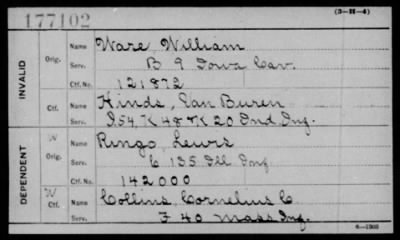 177102
(3-H-4)
INVALID
Orig. Name Ware, William
Serv. B 9 Iowa Cav.
Ctf. No. 121872
Ctf. Name Hinds, Van Buren
Serv. I 54, K 48 & K 20 Ind Inf.
DEPENDENT
W Orig. Name Ringo, Lewis
Serv. C 135 Ill Inf
Ctf. No. 142000
W Ctf. Name Collins, Cornelius C.
Serv. F 40 Mass Inf.